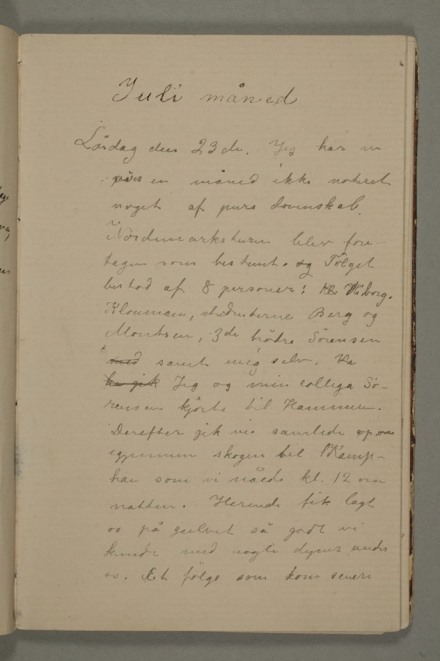 Juli måned
Lördag den 23de. Jeg har nu
en måned ikke noteret
noget af pura dovnskab.
Nordmarksturen blev fore-
tagen som bestemt. og Fölget
bestod af 8 personer: Wiborg,
Kloumann, studenterne Berg og
3de brödre Sörensen
med samt mig selv. Kl
Jeg og min collega Sö-
rensen kjörte til Hammeren.
Derefter gik vi samtlide op
igjennem skogen til Kamp-
hau som vi nåede kl. 12 om
natten. Herinde fik lagt
os på gulvet så godt vi
kunde med nogle dyner under
os. Et fölge som kom senere